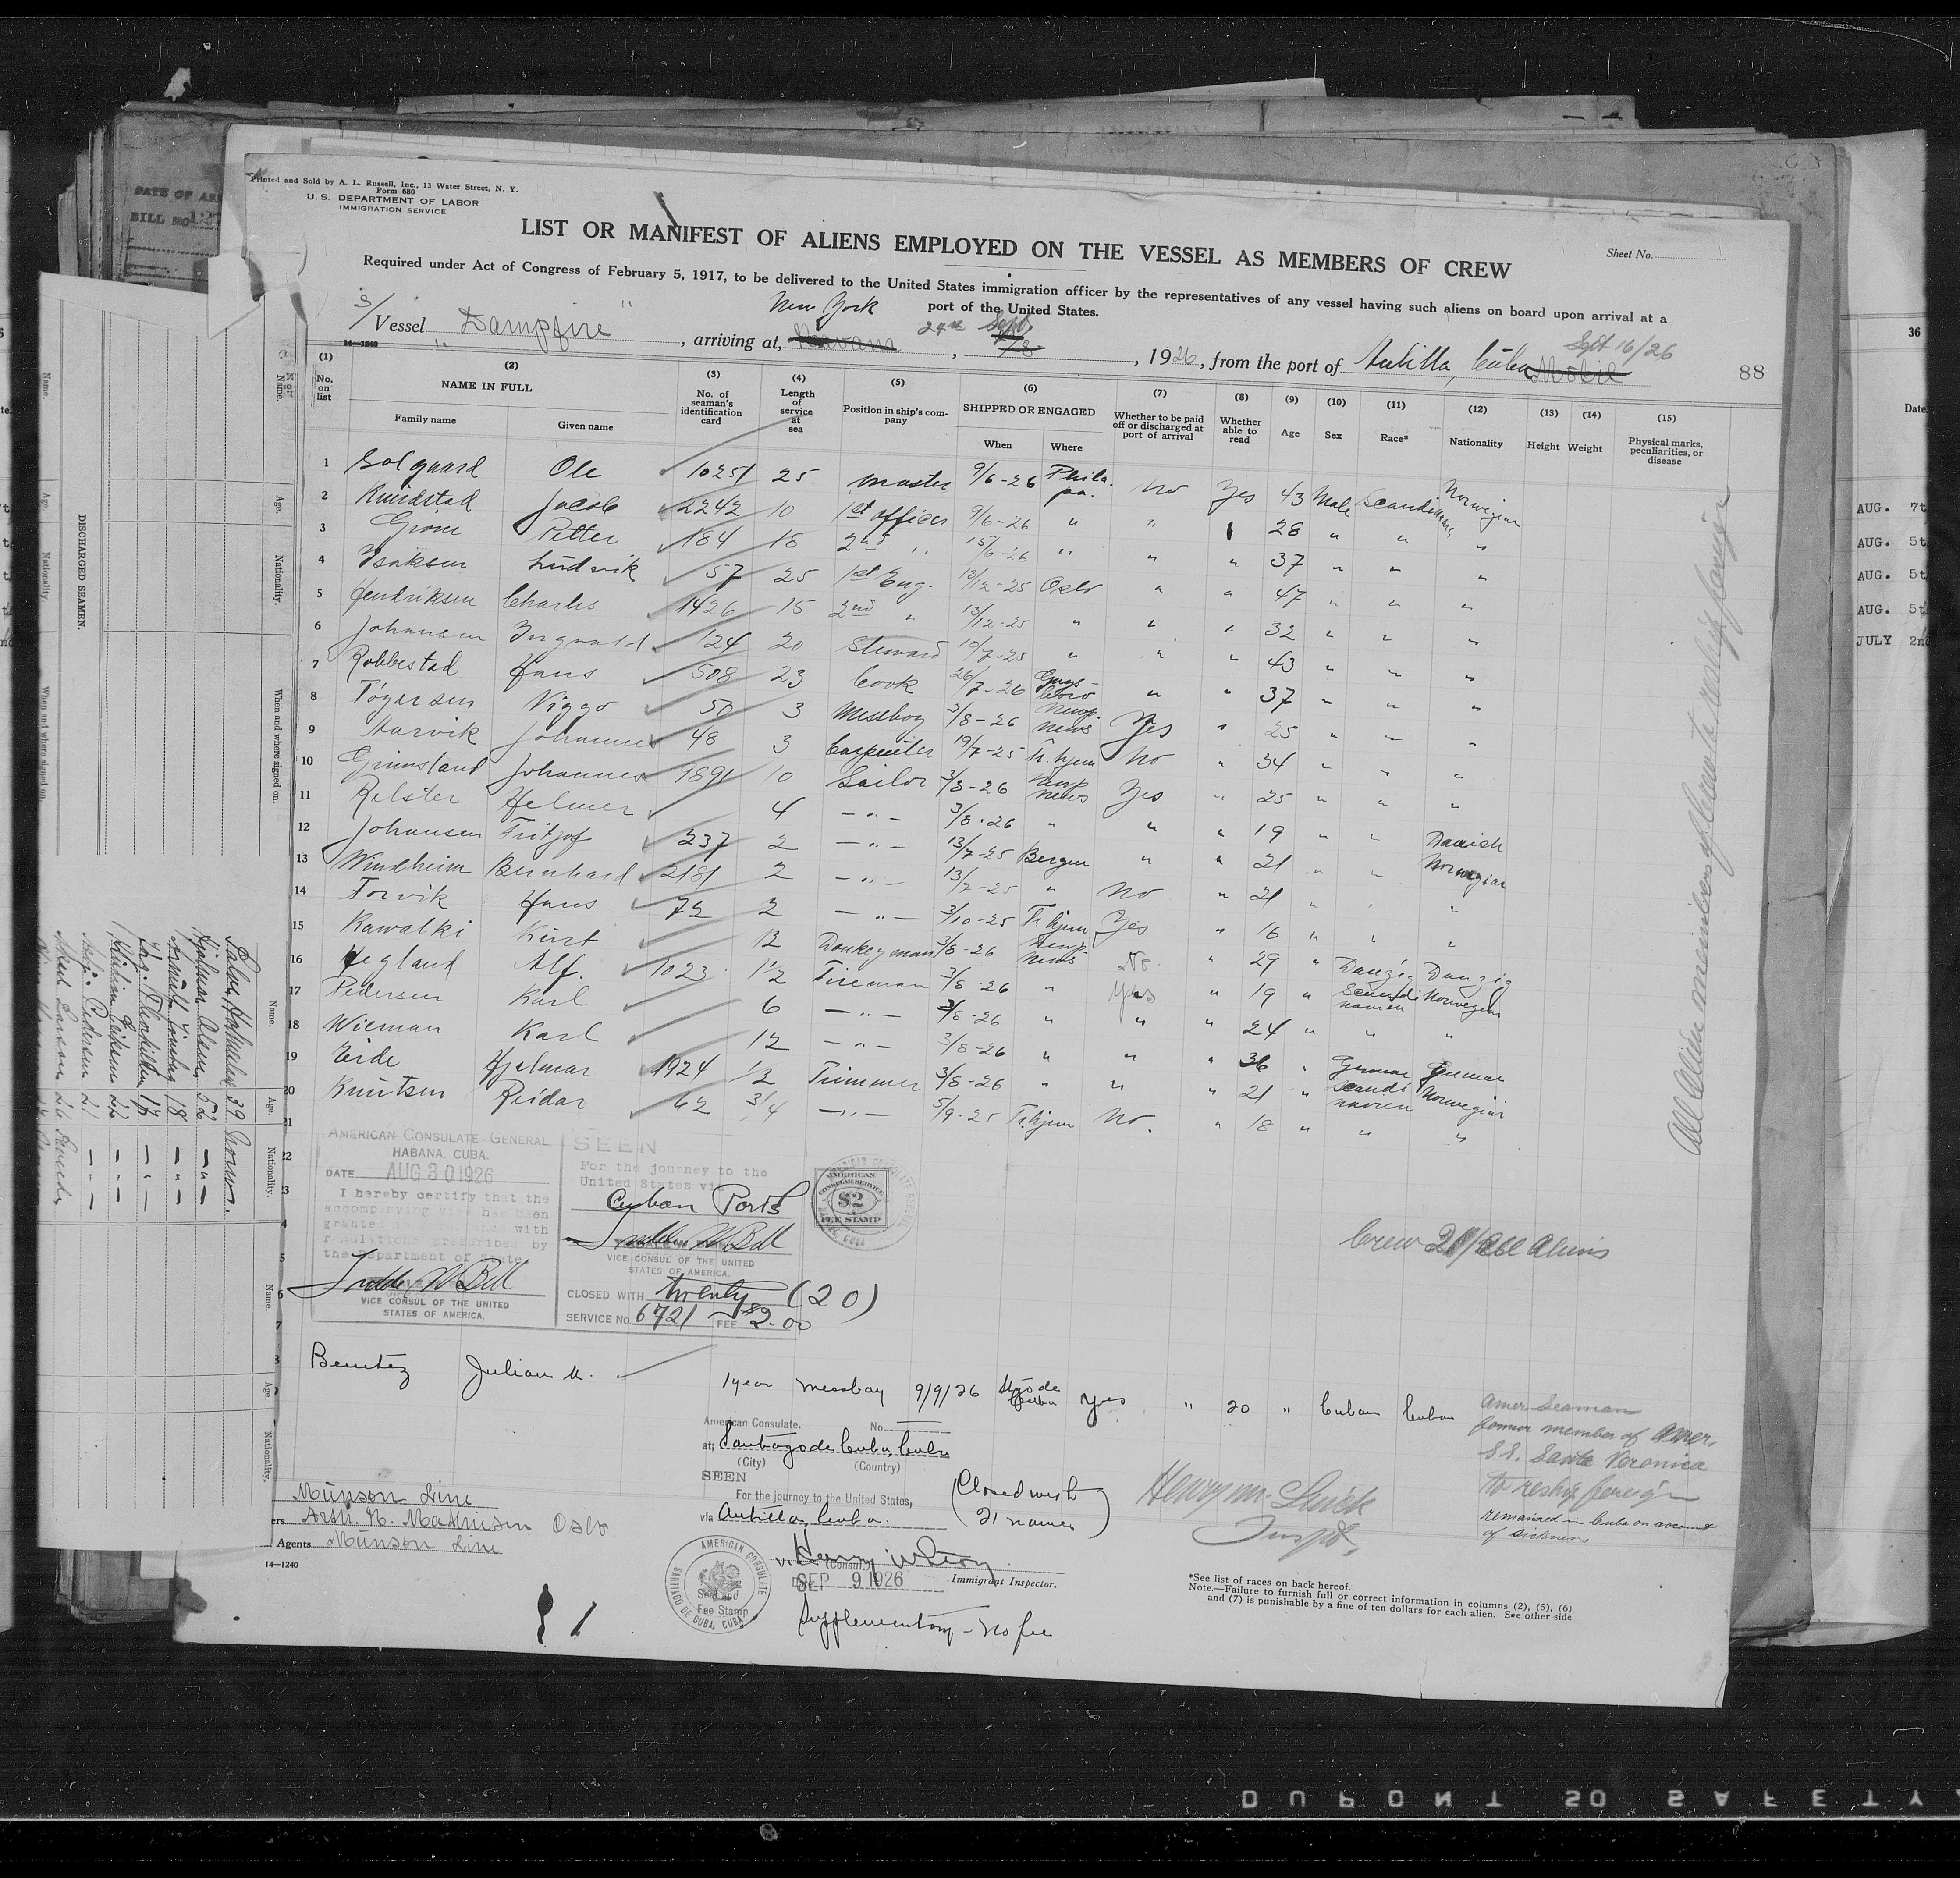 Printed and Sold by A. L. Russell, Inc., 13 Water Street, N. Y.
Form 680
U. S. DEPARTMENT OF LABOR
IMMIGRATION SERVICE
Sheet No.
LIST OR MANIFEST OF ALIENS EMPLOYED ON THE VESSEL AS MEMBERS OF CREW
Required under Act of Congress of February 5, 1917, to be delivered to the United States immigration officer by the representatives of any vessel having such aliens on board upon arrival at a
port of the United States.
New York
24th Sept.
Sept 16/26
S/ Vessel " Dampfire " , arriving at, Havana , /8 , 1926, from the port of Antilla, Cuba Mobil
14—1240
88
(1) No. on list
(2) NAME IN FULL
Family name Given name
(3) No. of seaman's identification card
(4) Length of service at sea
(5) Position in ship's company
(6) SHIPPED OR ENGAGED
When Where
(7) Whether to be paid off or discharged at port of arrival
(8) Whether able to read
(9) Age
(10) Sex
(11) Race*
(12) Nationality
(13) Height
(14) Weight
(15) Physical marks, peculiarities, or disease
1 Solgaard Ole 10251 25 Master 9/6-26 Phila. pa. No Yes 43 Male Scandinavi Norwegian
2 Jacob 2242 10 1st officer 9/6-26 " " 28 " " "
3 Petter 184 18 2nd " 15/6-26 " " " 37 " " "
4 Isaksen Ludvik 57 25 1st Eng. 13/12-25 Oslo " " 47 " " "
5 Hendriksen Charles 1426 15 2nd " 13/12-25 " " " 32 " " "
6 Johansen Ingvald 124 20 Steward 10/7-25 " " " 43 " " "
7 Robbestad Hans 508 23 Cook 26/7-26 " " 37 " " "
8 Tögersen Viggo 50 3 Messboy 3/8-26 Newp. News Yes " 25 " " "
9 Johannes 48 3 Carpenter 19/7-25 Tr.hjem No " 34 " " "
10 Grimsland Johannes 1891 10 Sailor 3/8-26 Newp News Yes " 25 " " "
11 Relster Helmer 4 —"— 3/8-26 " " " 19 " " Danish
12 Johansen Fritjof 237 2 —"— 13/7-25 Bergen " " 21 " " Norwegian
13 Windheim Bernhard 2181 2 —"— 13/7-25 " No " 21 " " "
14 Forvik Hans 72 2 —"— 3/10-25 Tr.hjem Yes " 16 " " "
15 Kawalki Kurt 12 Donkeyman 3/8-26 Newp News No. " 29 " Danzig Danzig
16 Hegland Alf. 1023 1/2 Fireman 3/8-26 " Yes " 19 " Scandinavien Norwegian
17 Pedersen Karl 6 —"— 3/8-26 " " " 24 " " "
18 Wieman Karl 12 —"— 3/8-26 " " " 36 " German German
19 Eide Hjalmar 1924 1/2 Trimmer 3/8-26 " " " 21 " Scandinavien Norwegian
20 Knutsen Reidar 62 3/4 —"— 5/9-25 Tr.hjem No. " 18 " " "
21
22
All Alien members of crew to reship foreign
AMERICAN CONSULATE-GENERAL
HABANA, CUBA.
DATE AUG 30 1926
I hereby certify that the
accompanying visa has been
granted in accordance with
regulations prescribed by
the Department of State.
VICE CONSUL OF THE UNITED
STATES OF AMERICA.
SEEN
For the journey to the
United States via
Cuban Ports
VICE CONSUL OF THE UNITED
STATES OF AMERICA.
CLOSED WITH twenty (20)
SERVICE No. 6721 FEE $2.00
AMERICAN
CONSULAR SERVICE
$2
FEE STAMP
Crew 21/all Aliens
Benitez Julian M. 1 year messboy 9/9/26 Stgo de Cuba yes " 20 " Cuban Cuban
Amer. Seaman
former member of Amer.
S.S. Santa Veronica
to reship foreign
remained in Cuba on account
of sickness
American Consulate. No.
at Santiago de Cuba, Cuba
(City) (Country)
SEEN
For the journey to the United States,
via Antilla, Cuba.
(Closed with
21 names)
(Consul)
SEP 9 1926
Immigrant Inspector.
Supplementary - no fee
AMERICAN CONSULATE
Seal and
Fee Stamp
SANTIAGO DE CUBA, CUBA
Munson Line
ers Arth. H. Mathiesen Oslo
Agents Munson Line
14—1240
*See list of races on back hereof.
Note.—Failure to furnish full or correct information in columns (2), (5), (6)
and (7) is punishable by a fine of ten dollars for each alien. See other side
DISCHARGED SEAMEN.
Name. Age. Nationality. When and where signed on.
39 Norw.
Hjalmar Olsen 52 —"—
18 —"—
17 —"—
22 —"—
Pedersen 21 —"—
Larsson
DATE OF
BILL NO 127
36
Date
AUG. 7t
AUG. 5t
AUG. 5t
AUG. 5t
JULY 2n
DUPONT SO SAFETY